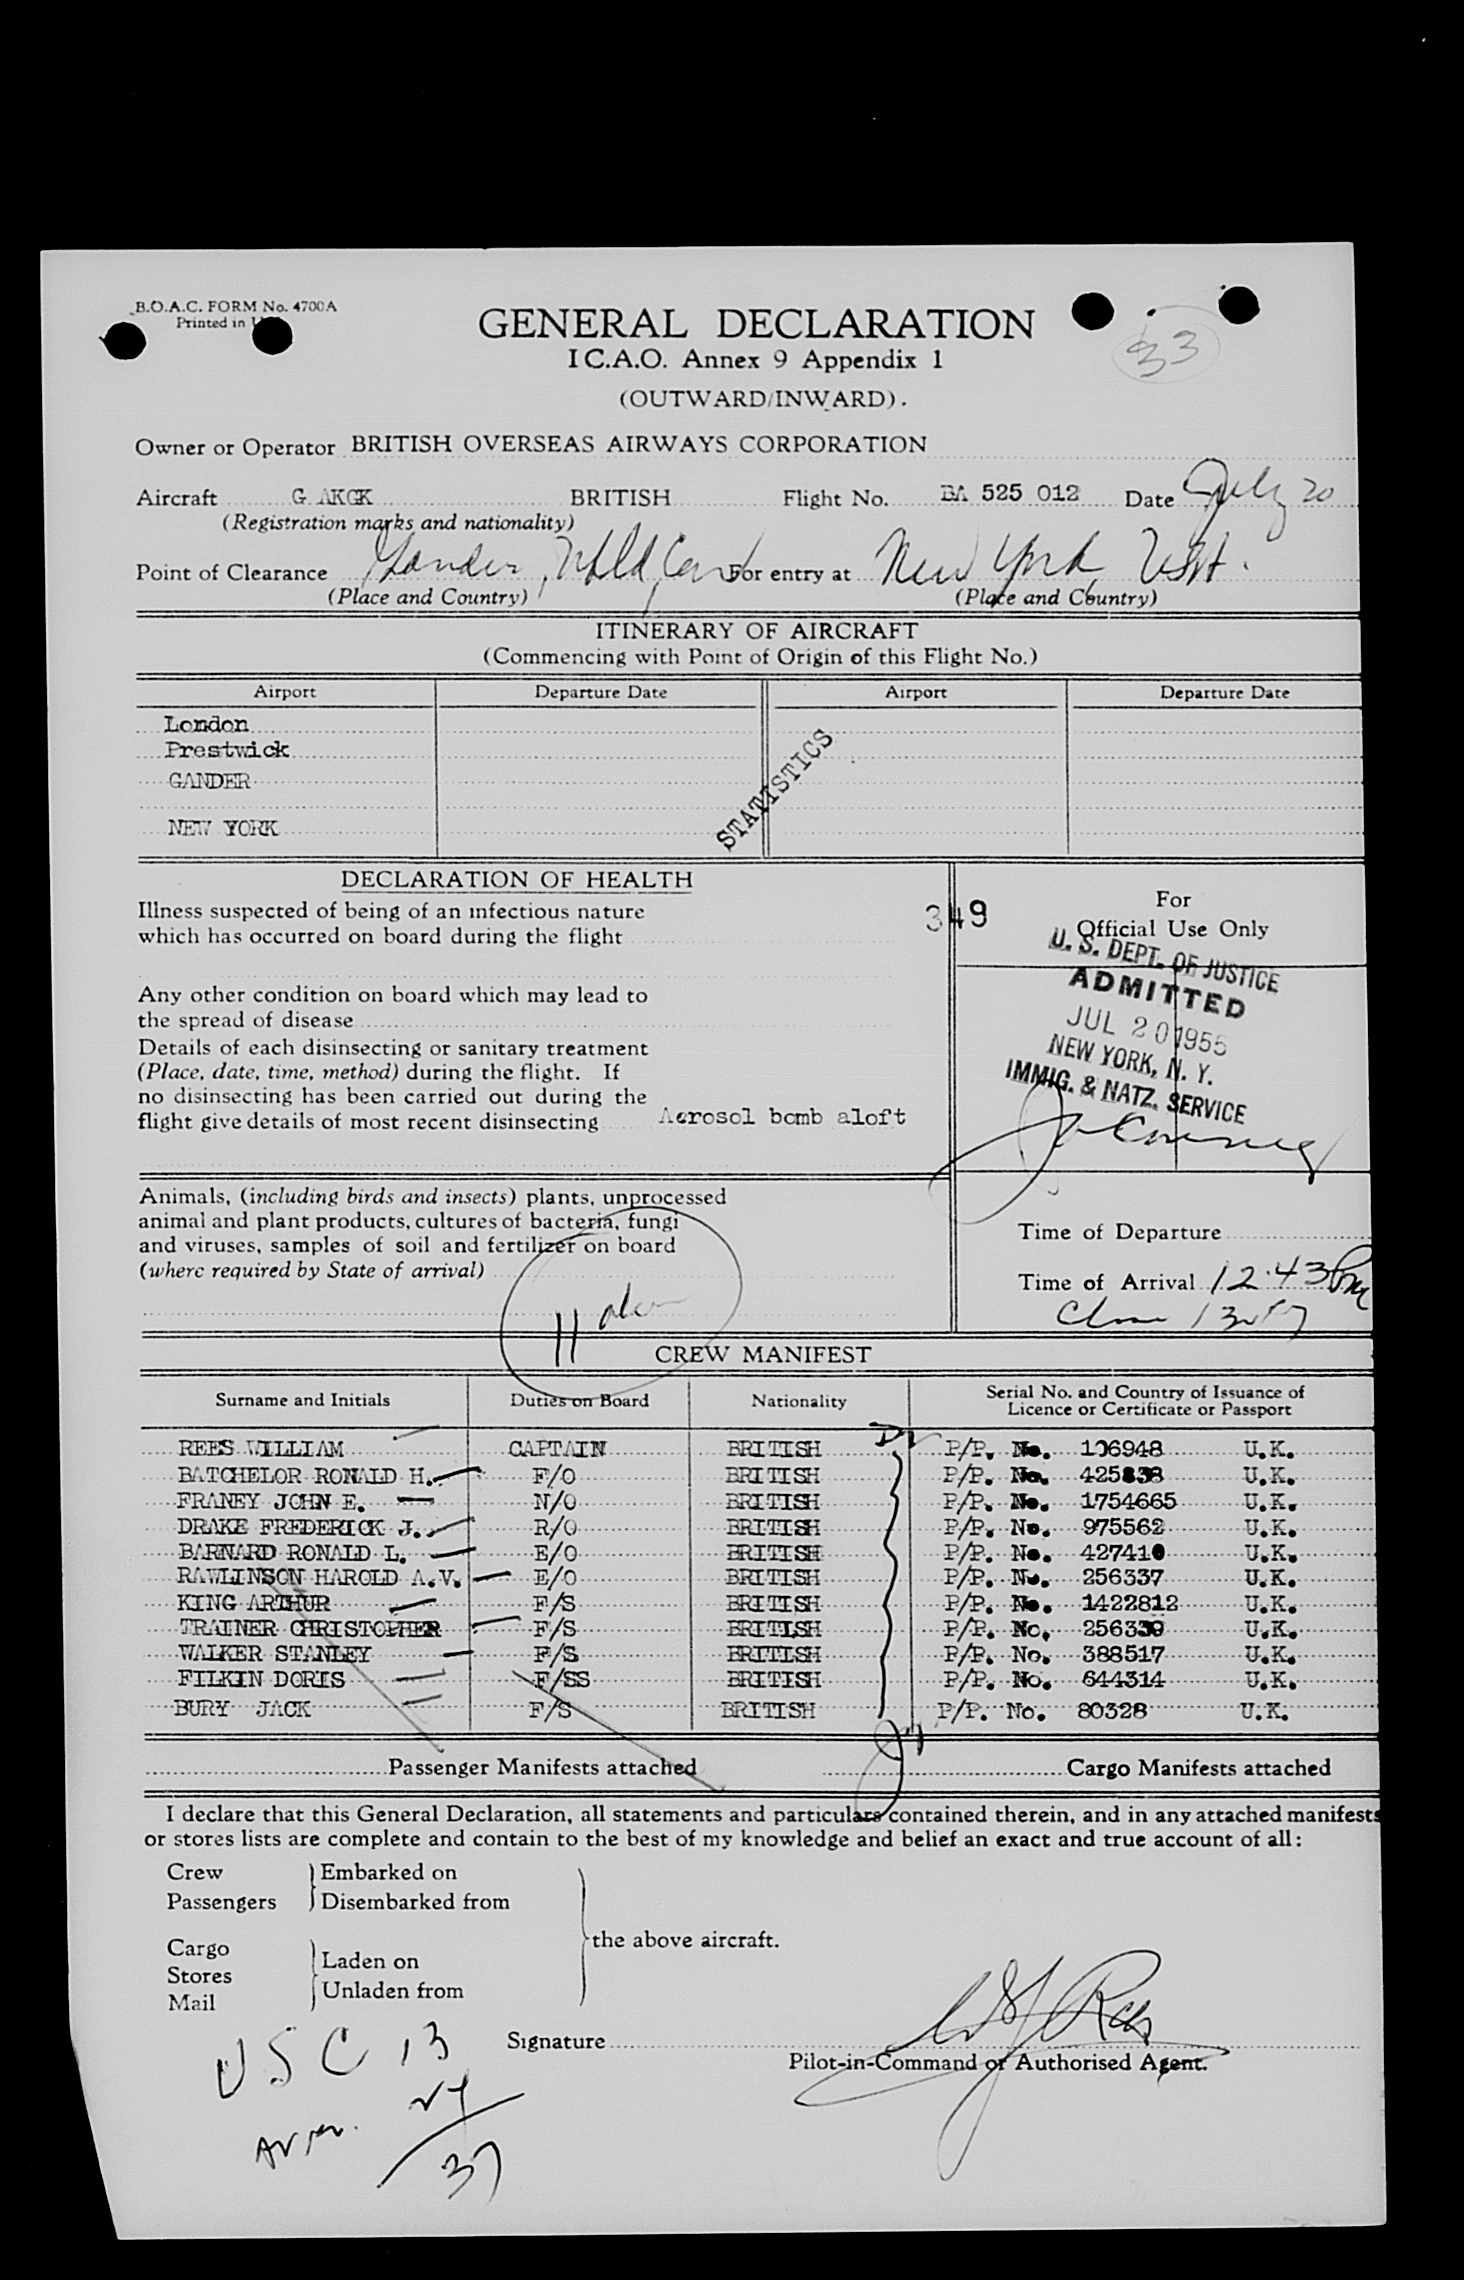 B.O.A.C. FORM No. 4700A
Printed in
GENERAL DECLARATION
I C.A.O. Annex 9 Appendix 1
(OUTWARD/INWARD).
33
Owner or Operator BRITISH OVERSEAS AIRWAYS CORPORATION
Aircraft G AKGK BRITISH Flight No. BA 525 012 Date July 20
(Registration marks and nationality)
Point of Clearance Gander, Nfld, Can For entry at New York, USA.
(Place and Country) (Place and Country)
ITINERARY OF AIRCRAFT
(Commencing with Point of Origin of this Flight No.)
Airport Departure Date Airport Departure Date
London
Prestwick
GANDER
NEW YORK
STATISTICS
DECLARATION OF HEALTH
Illness suspected of being of an infectious nature
which has occurred on board during the flight
Any other condition on board which may lead to
the spread of disease
Details of each disinsecting or sanitary treatment
(Place, date, time, method) during the flight. If
no disinsecting has been carried out during the
flight give details of most recent disinsecting Aerosol bomb aloft
349
For
Official Use Only
U. S. DEPT. OF JUSTICE
ADMITTED
JUL 20 1955
NEW YORK, N. Y.
IMMIG. & NATZ. SERVICE
Animals, (including birds and insects) plants, unprocessed
animal and plant products, cultures of bacteria, fungi
and viruses, samples of soil and fertilizer on board
(where required by State of arrival)
11
Time of Departure
Time of Arrival 12.43 Pm
CREW MANIFEST
Surname and Initials Duties on Board Nationality Serial No. and Country of Issuance of
Licence or Certificate or Passport
REES WILLIAM CAPTAIN BRITISH P/P. No. 106948 U.K.
BATCHELOR RONALD H. F/O BRITISH P/P. No. 425838 U.K.
FRANEY JOHN E. N/O BRITISH P/P. No. 1754665 U.K.
DRAKE FREDERICK J. R/O BRITISH P/P. No. 975562 U.K.
BARNARD RONALD L. E/O BRITISH P/P. No. 427410 U.K.
RAWLINSON HAROLD A.V. E/O BRITISH P/P. No. 256337 U.K.
KING ARTHUR F/S BRITISH P/P. No. 1422812 U.K.
TRAINER CHRISTOPHER F/S BRITISH P/P. No. 256339 U.K.
WALKER STANLEY F/S BRITISH P/P. No. 388517 U.K.
FILKIN DORIS F/SS BRITISH P/P. No. 644314 U.K.
BURY JACK F/S BRITISH P/P. No. 80328 U.K.
Passenger Manifests attached Cargo Manifests attached
I declare that this General Declaration, all statements and particulars contained therein, and in any attached manifests
or stores lists are complete and contain to the best of my knowledge and belief an exact and true account of all:
Crew Embarked on
Passengers Disembarked from
the above aircraft.
Cargo Laden on
Stores
Mail Unladen from
Signature W J Rees
Pilot-in-Command or Authorised Agent.
USC 13
24
37